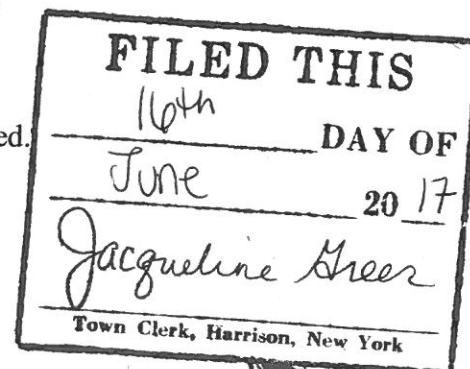 FILED THIS
16th DAY OF
ed.
June 20 17
Jacqueline Greer
Town Clerk, Harrison, New York